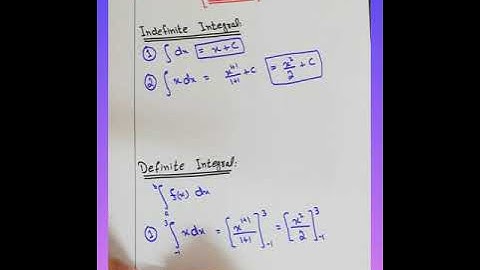 Indefinite Integral:
① ∫ dx = x + C
② ∫ x dx = x^(1+1)/(1+1) + C = x²/2 + C
Definite Integral:
∫_a^b f(x) dx
① ∫_{-1}^3 x dx = [x^(1+1)/(1+1)]_{-1}^3 = [x²/2]_{-1}^3